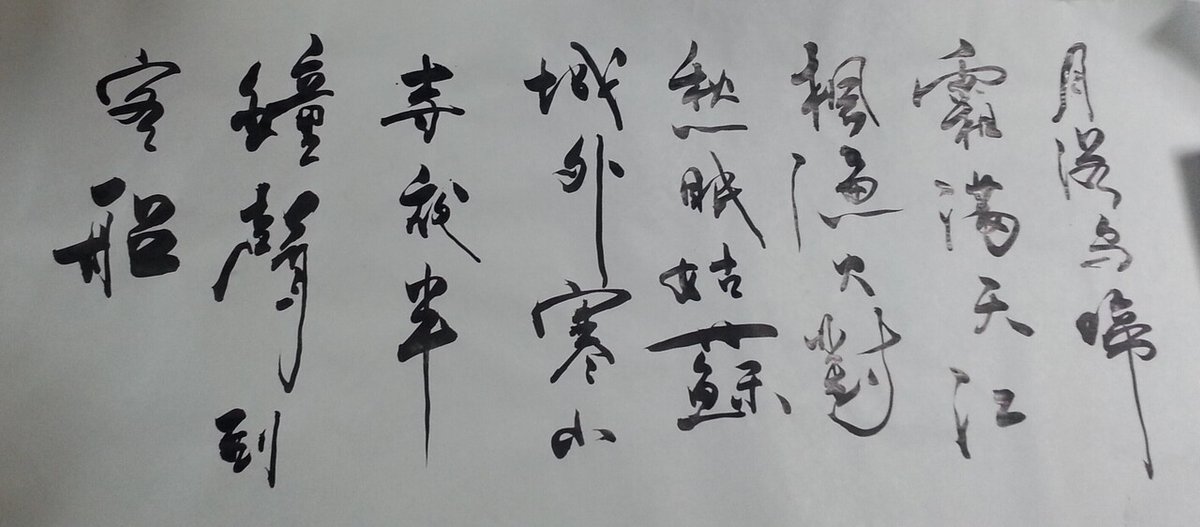 月落烏啼
霜滿天江
楓漁火對
愁眠姑蘇
城外寒山
寺夜半
鐘聲到
客船